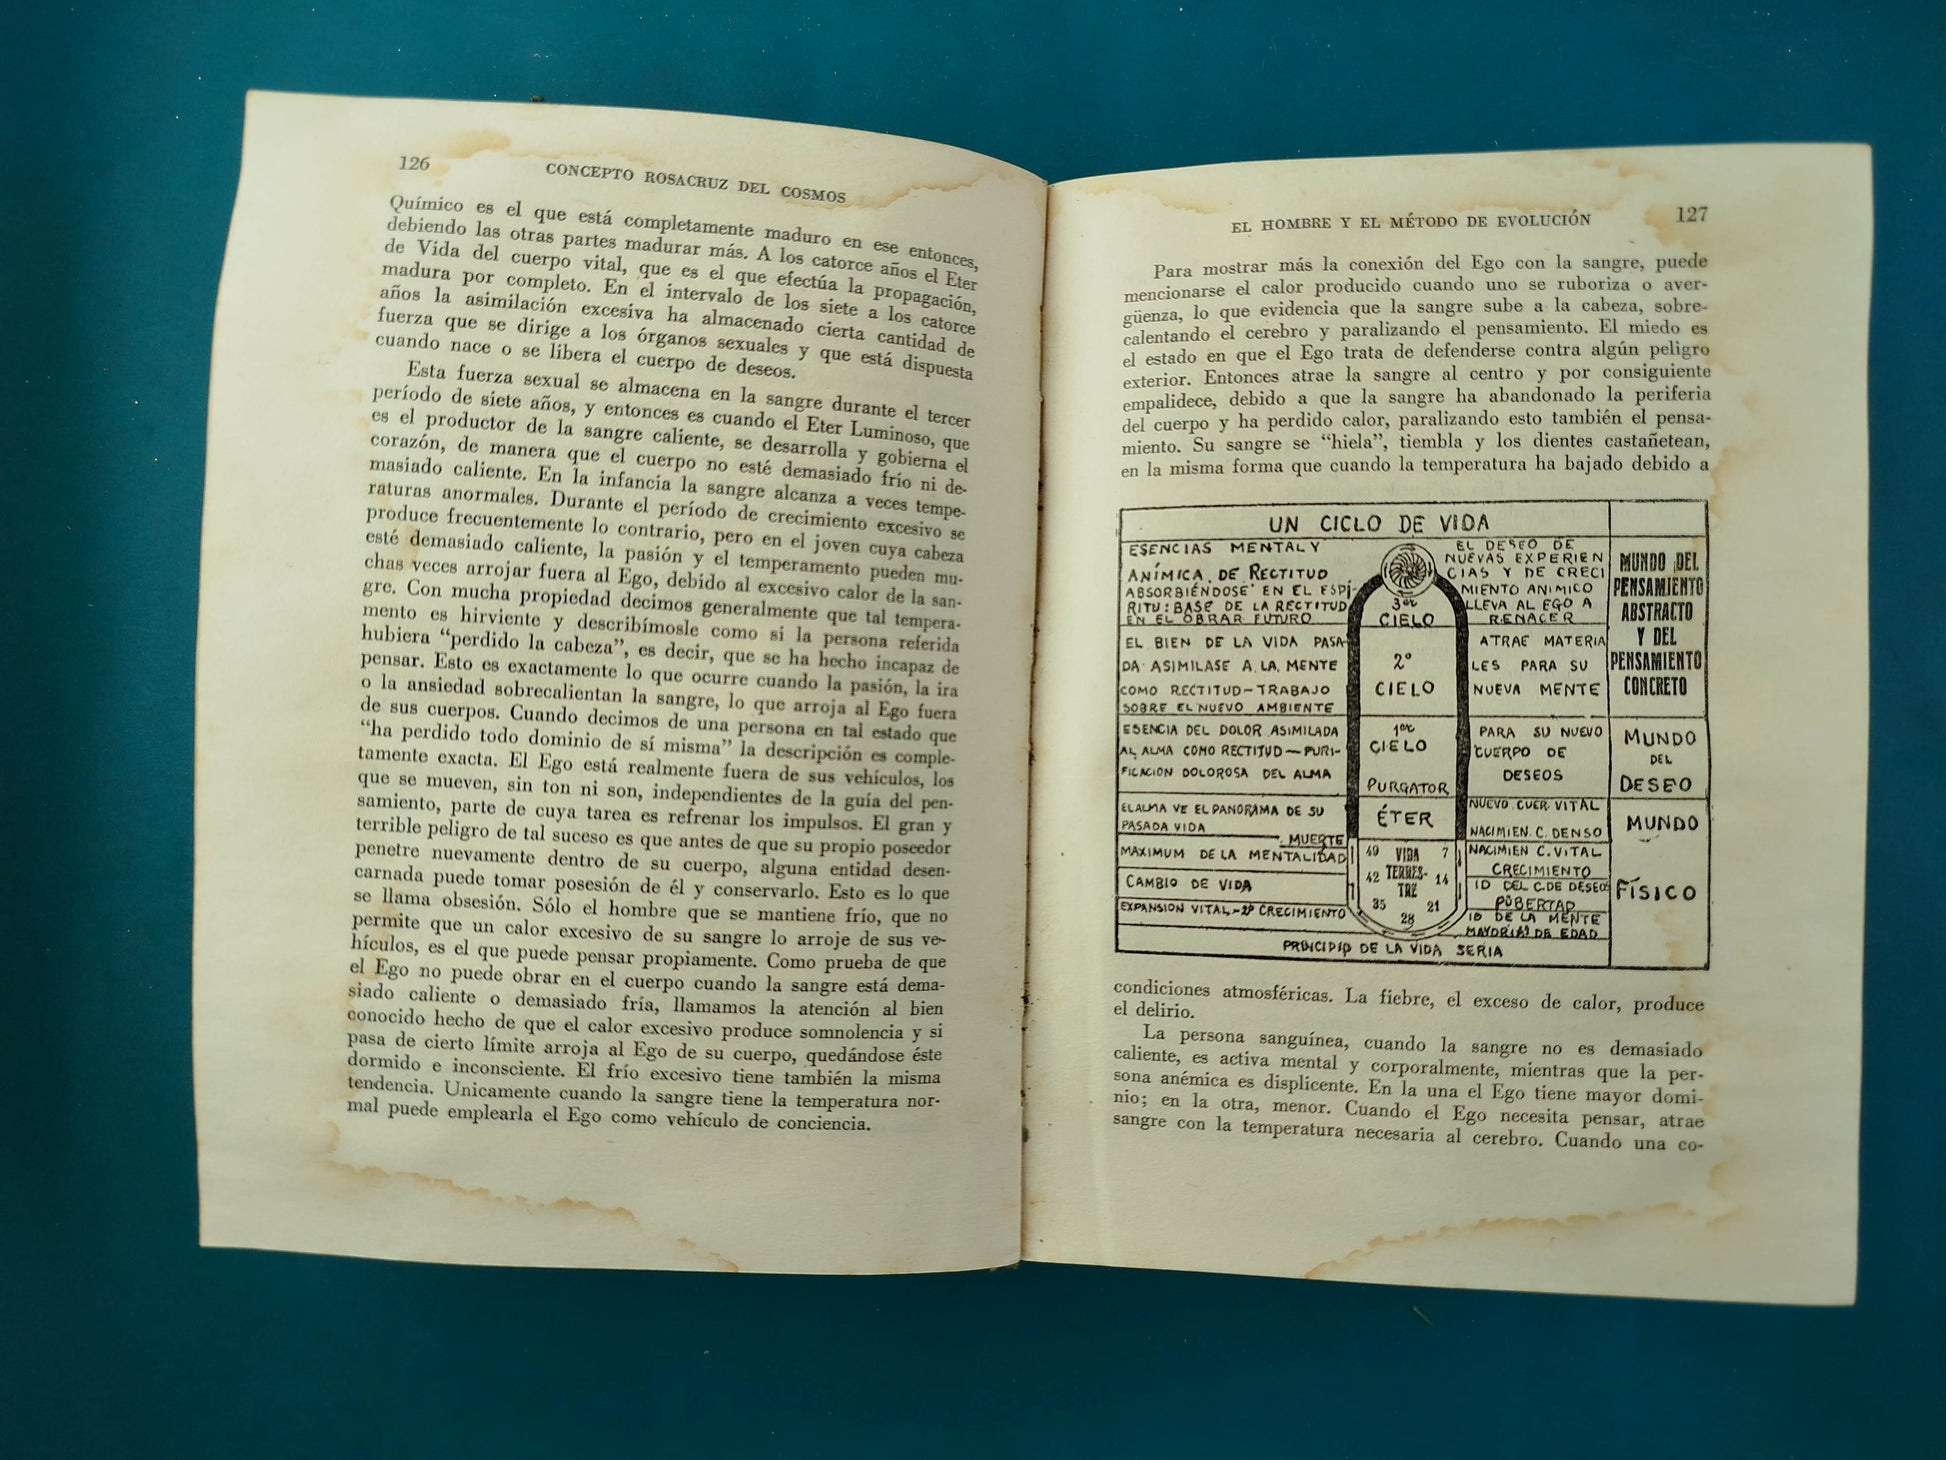 126
CONCEPTO ROSACRUZ DEL COSMOS
Químico es el que está completamente maduro en ese entonces,
debiendo las otras partes madurar más. A los catorce años el Eter
de Vida del cuerpo vital, que es el que efectúa la propagación,
madura por completo. En el intervalo de los siete a los catorce
años la asimilación excesiva ha almacenado cierta cantidad de
fuerza que se dirige a los órganos sexuales y que está dispuesta
cuando nace o se libera el cuerpo de deseos.
Esta fuerza sexual se almacena en la sangre durante el tercer
período de siete años, y entonces es cuando el Eter Luminoso, que
es el productor de la sangre caliente, se desarrolla y gobierna el
corazón, de manera que el cuerpo no esté demasiado frío ni de-
masiado caliente. En la infancia la sangre alcanza a veces tempe-
raturas anormales. Durante el período de crecimiento excesivo se
produce frecuentemente lo contrario, pero en el joven cuya cabeza
esté demasiado caliente, la pasión y el temperamento pueden mu-
chas veces arrojar fuera al Ego, debido al excesivo calor de la san-
gre. Con mucha propiedad decimos generalmente que tal tempera-
mento es hirviente y describímosle como si la persona referida
hubiera "perdido la cabeza", es decir, que se ha hecho incapaz de
pensar. Esto es exactamente lo que ocurre cuando la pasión, la ira
o la ansiedad sobrecalientan la sangre, lo que arroja al Ego fuera
de sus cuerpos. Cuando decimos de una persona en tal estado que
"ha perdido todo dominio de sí misma" la descripción es comple-
tamente exacta. El Ego está realmente fuera de sus vehículos, los
que se mueven, sin ton ni son, independientes de la guía del pen-
samiento, parte de cuya tarea es refrenar los impulsos. El gran y
terrible peligro de tal suceso es que antes de que su propio poseedor
penetre nuevamente dentro de su cuerpo, alguna entidad desen-
carnada puede tomar posesión de él y conservarlo. Esto es lo que
se llama obsesión. Sólo el hombre que se mantiene frío, que no
permite que un calor excesivo de su sangre lo arroje de sus ve-
hículos, es el que puede pensar propiamente. Como prueba de que
el Ego no puede obrar en el cuerpo cuando la sangre está dema-
siado caliente o demasiado fría, llamamos la atención al bien
conocido hecho de que el calor excesivo produce somnolencia y si
pasa de cierto límite arroja al Ego de su cuerpo, quedándose éste
dormido e inconsciente. El frío excesivo tiene también la misma
tendencia. Unicamente cuando la sangre tiene la temperatura nor-
mal puede emplearla el Ego como vehículo de conciencia.
EL HOMBRE Y EL MÉTODO DE EVOLUCIÓN
127
Para mostrar más la conexión del Ego con la sangre, puede
mencionarse el calor producido cuando uno se ruboriza o aver-
güenza, lo que evidencia que la sangre sube a la cabeza, sobre-
calentando el cerebro y paralizando el pensamiento. El miedo es
el estado en que el Ego trata de defenderse contra algún peligro
exterior. Entonces atrae la sangre al centro y por consiguiente
empalidece, debido a que la sangre ha abandonado la periferia
del cuerpo y ha perdido calor, paralizando esto también el pensa-
miento. Su sangre se "hiela", tiembla y los dientes castañetean,
en la misma forma que cuando la temperatura ha bajado debido a
UN CICLO DE VIDA
ESENCIAS MENTAL Y
ANÍMICA DE RECTITUD
ABSORBIÉNDOSE EN EL ESPÍ-
RITU: BASE DE LA RECTITUD
EN EL OBRAR FUTURO
3er
CIELO
EL DESEO DE
NUEVAS EXPERIEN
CIAS Y DE CRECI
MIENTO ANIMICO
LLEVA AL EGO A
RENACER
MUNDO DEL
PENSAMIENTO
ABSTRACTO
Y DEL
PENSAMIENTO
CONCRETO
EL BIEN DE LA VIDA PASA-
DA ASIMILASE A LA MENTE
COMO RECTITUD-TRABAJO
SOBRE EL NUEVO AMBIENTE
2º
CIELO
ATRAE MATERIA
LES PARA SU
NUEVA MENTE
ESENCIA DEL DOLOR ASIMILADA
AL ALMA COMO RECTITUD-PURI-
FICACION DOLOROSA DEL ALMA
1er
CIELO
PURGATOR
PARA SU NUEVO
CUERPO DE
DESEOS
MUNDO
DEL
DESEO
EL ALMA VE EL PANORAMA DE SU
PASADA VIDA
MUERTE
ÉTER
NUEVO CUER. VITAL
NACIMIEN. C. DENSO
MUNDO
FÍSICO
MAXIMUM DE LA MENTALIDAD
CAMBIO DE VIDA
EXPANSION VITAL-2º CRECIMIENTO
49 VIDA 7
42 TERRES- 14
TRE
35 21
28
NACIMIEN C. VITAL
CRECIMIENTO
ID DEL C. DE DESEOS
PUBERTAD
ID DE LA MENTE
MAYORIA DE EDAD
PRINCIPIO DE LA VIDA SERIA
condiciones atmosféricas. La fiebre, el exceso de calor, produce
el delirio.
La persona sanguínea, cuando la sangre no es demasiado
caliente, es activa mental y corporalmente, mientras que la per-
sona anémica es displicente. En la una el Ego tiene mayor domi-
nio; en la otra, menor. Cuando el Ego necesita pensar, atrae
sangre con la temperatura necesaria al cerebro. Cuando una co-